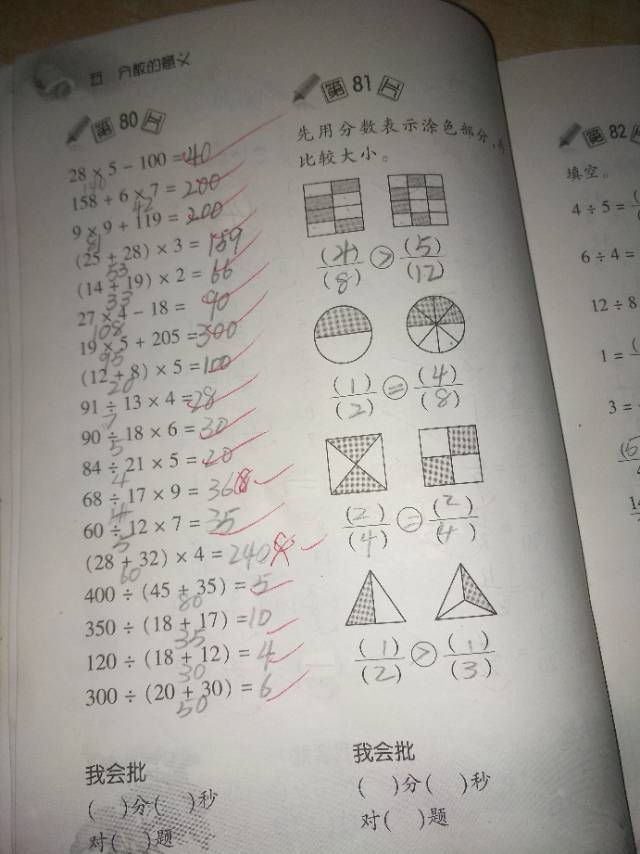 四 分数的意义
第80天
28 × 5 − 100 = 40
140
158 + 6 × 7 = 200
42
9 × 9 + 119 = 200
81
(25 + 28) × 3 = 159
53
(14 + 19) × 2 = 66
33
27 × 4 − 18 = 90
108
19 × 5 + 205 = 300
95
(12 + 8) × 5 = 100
20
91 ÷ 13 × 4 = 28
7
90 ÷ 18 × 6 = 30
5
84 ÷ 21 × 5 = 20
4
68 ÷ 17 × 9 = 36
4
60 ÷ 12 × 7 = 35
5
(28 + 32) × 4 = 240
60
400 ÷ (45 + 35) = 5
80
350 ÷ (18 + 17) = 10
35
120 ÷ (18 + 12) = 4
30
300 ÷ (20 + 30) = 6
50
我会批
( )分( )秒
对( )题
第81天
先用分数表示涂色部分,
比较大小。
(4) > (5)
(8) (12)
(1) = (4)
(2) (8)
(2) = (2)
(4) (4)
(1) > (1)
(2) (3)
我会批
( )分( )秒
对( )题
第82天
填空。
4 ÷ 5 = (
6 ÷ 4 =
12 ÷ 8
1 = (
3 =